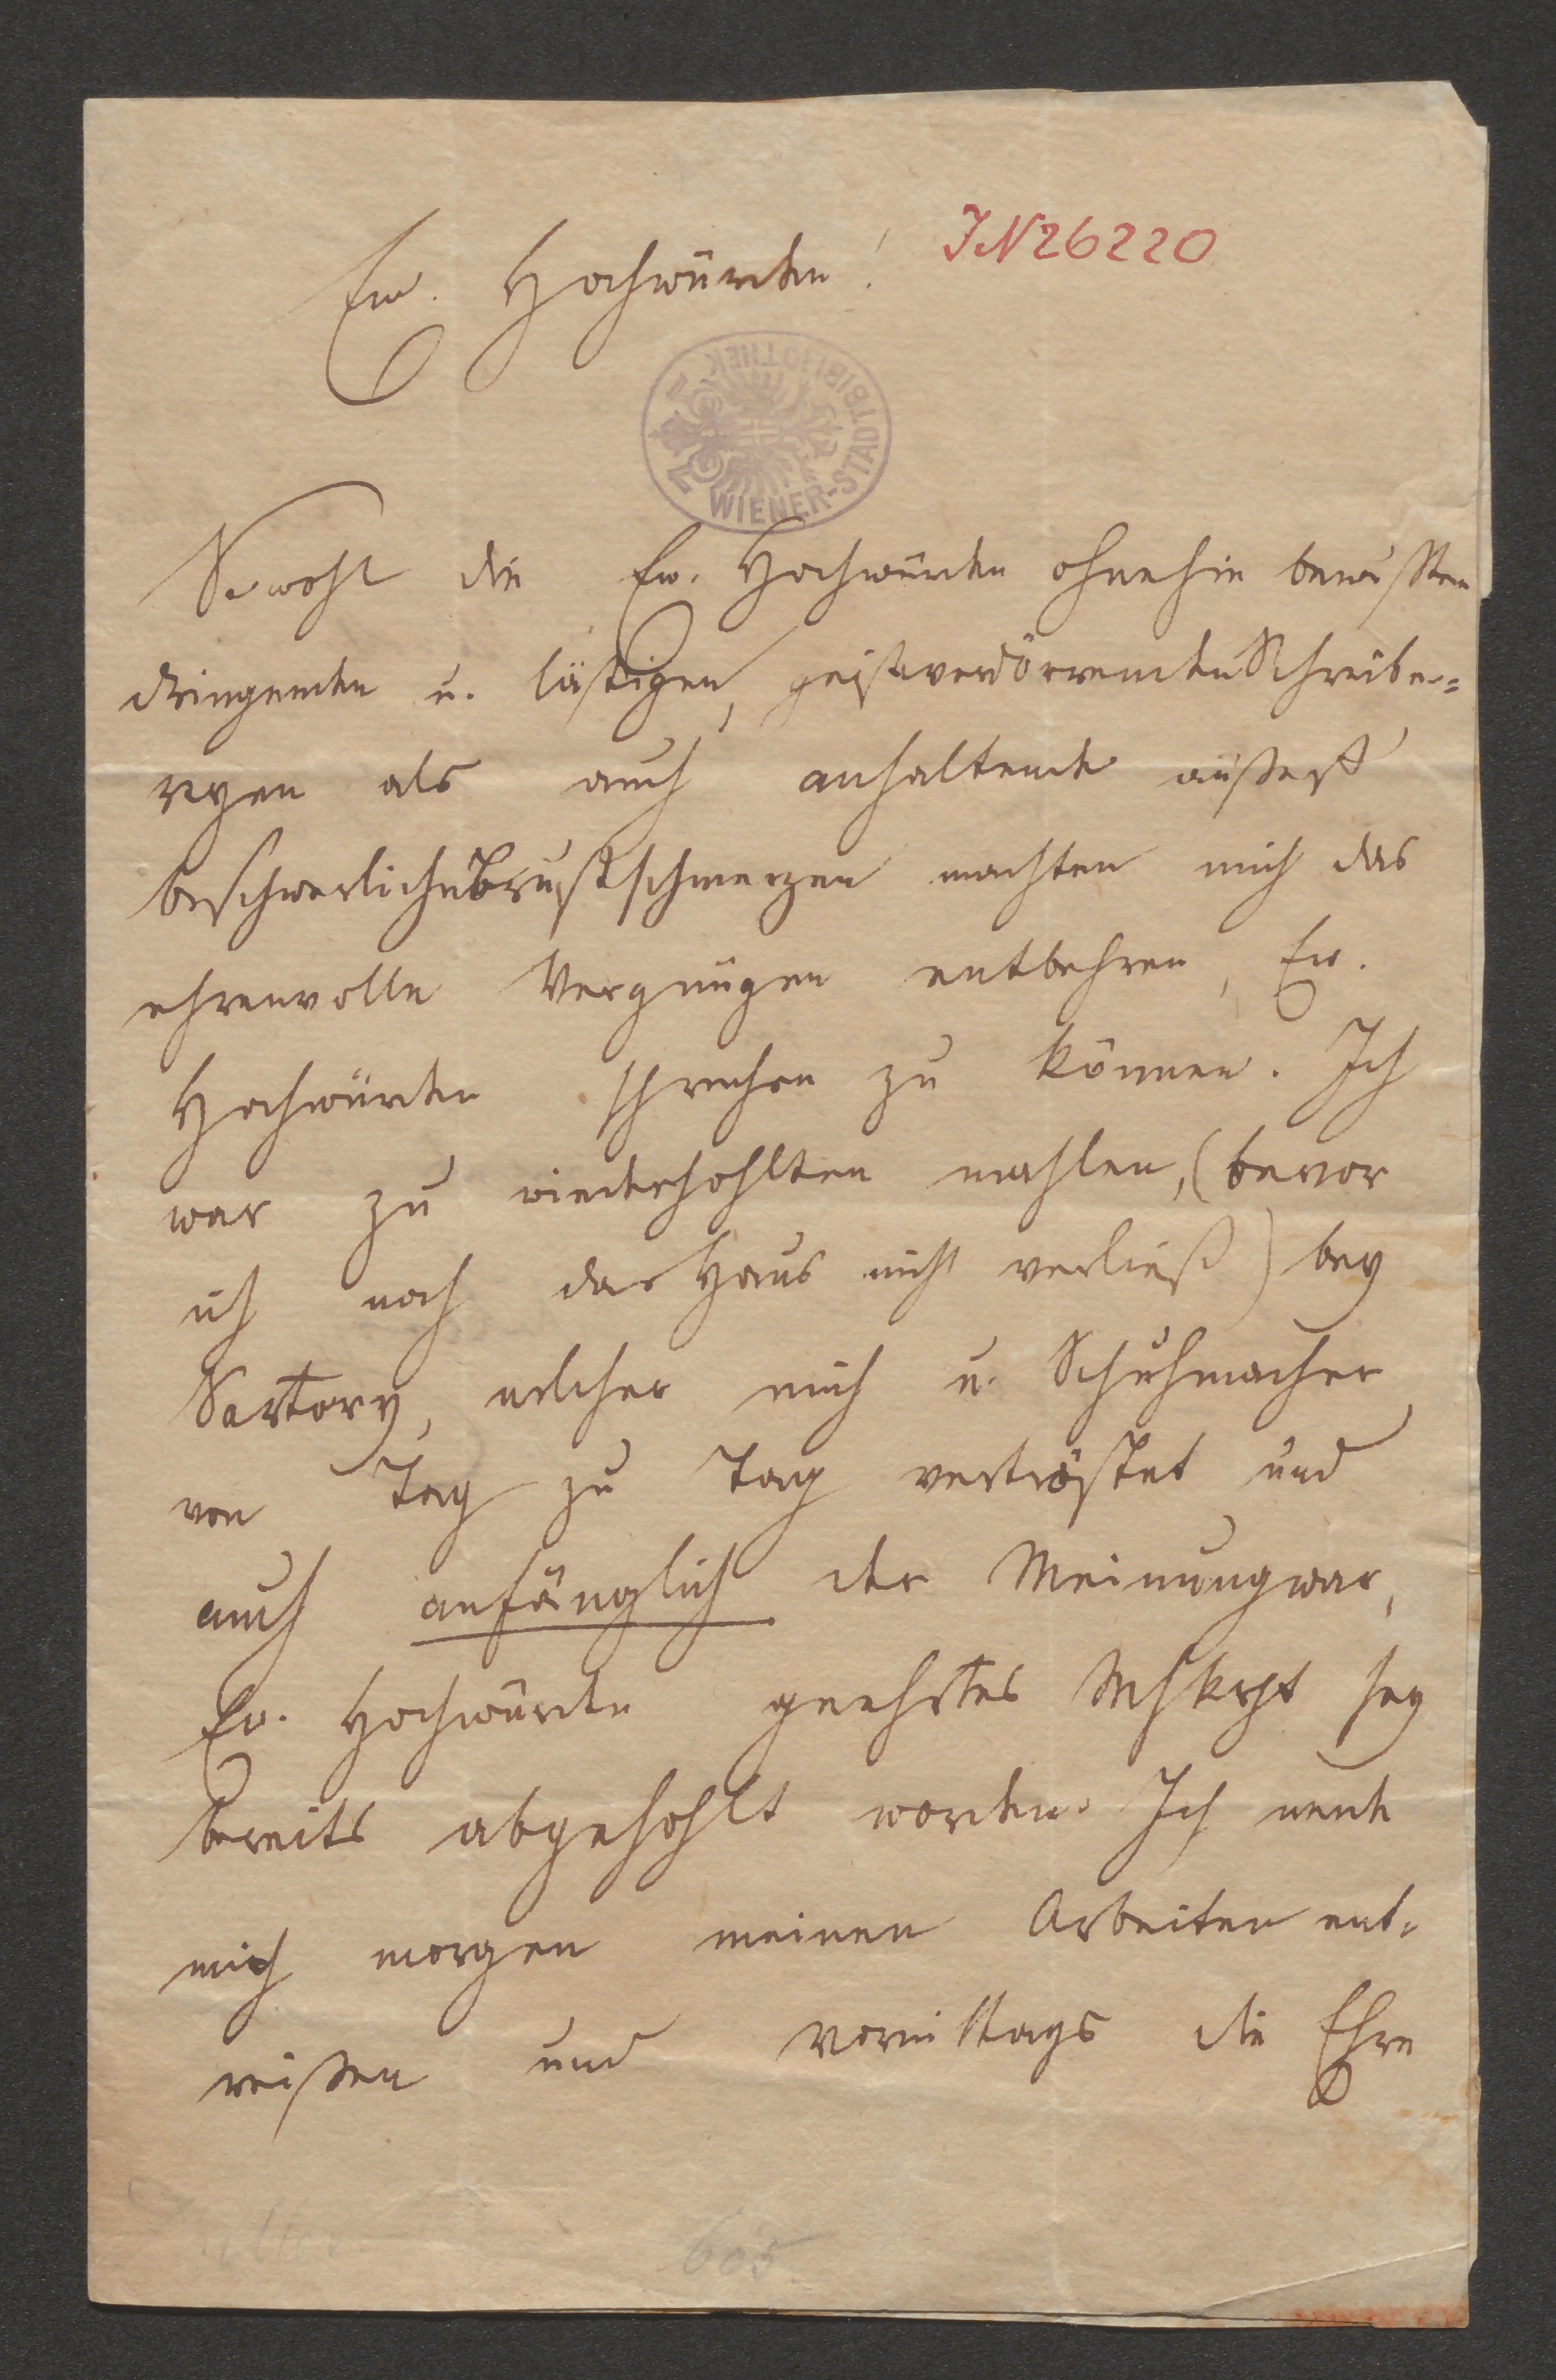 Ew. Hochwürden!
IN 26220
WIENER-STADTBIBLIOTHEK
Sowohl die Ew. Hochwürden ohnehin bewußten
dringenden u. lästigen, geistverdörrenden Schreibe-
reyen als auch anhaltende äußerst
beschwerliche Brustschmerzen machten mich das
ehrenvolle Vergnügen entbehren, Ew.
Hochwürden sprechen zu können. Ich
war zu wiederhohlten mahlen, (bevor
ich noch das Haus nicht verließ) bey
Sartory, welcher mich u. Schuhmacher
von Tag zu Tag vertröstet und
auch anfänglich der Meinung war,
Ew. Hochwürden geehrtes Mskrpt sey
bereits abgehohlt worden. Ich werde
mich morgen meinen Arbeiten ent-
reißen und vormittags die Ehre
605